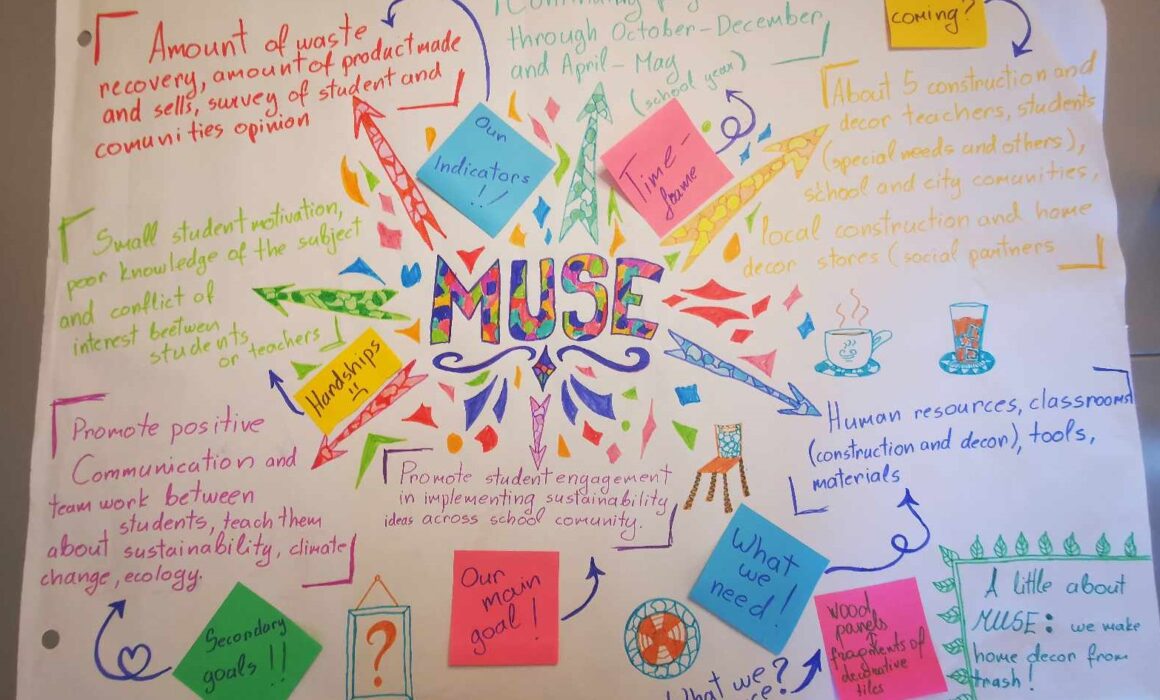 Amount of waste
recovery, amount of product made
and sells, survey of student and
comunities opinion
through October-December
and April-May
(school year)
coming?
About 5 construction and
decor teachers, students
(special needs and others),
school and city comunities,
local construction and home
decor stores (social partners
Our
Indicators
!!
Time-
frame
Small student motivation,
poor knowledge of the subject
and conflict of
interest beetween
students
or teachers
MUSE
Handships
Promote positive
Communication and
team work between
students, teach them
about sustainability, climate
change, ecology.
Promote student engagement
in implementing sustainability
ideas across school comunity.
Human resources, classrooms
(construction and decor), tools,
materials
Secondary
goals!!
?
Our
main
goal!
What
we
need!
What we?
wood
panels
fragments of
decorative
tiles
A little about
MUSE: we make
home decor from
trash!